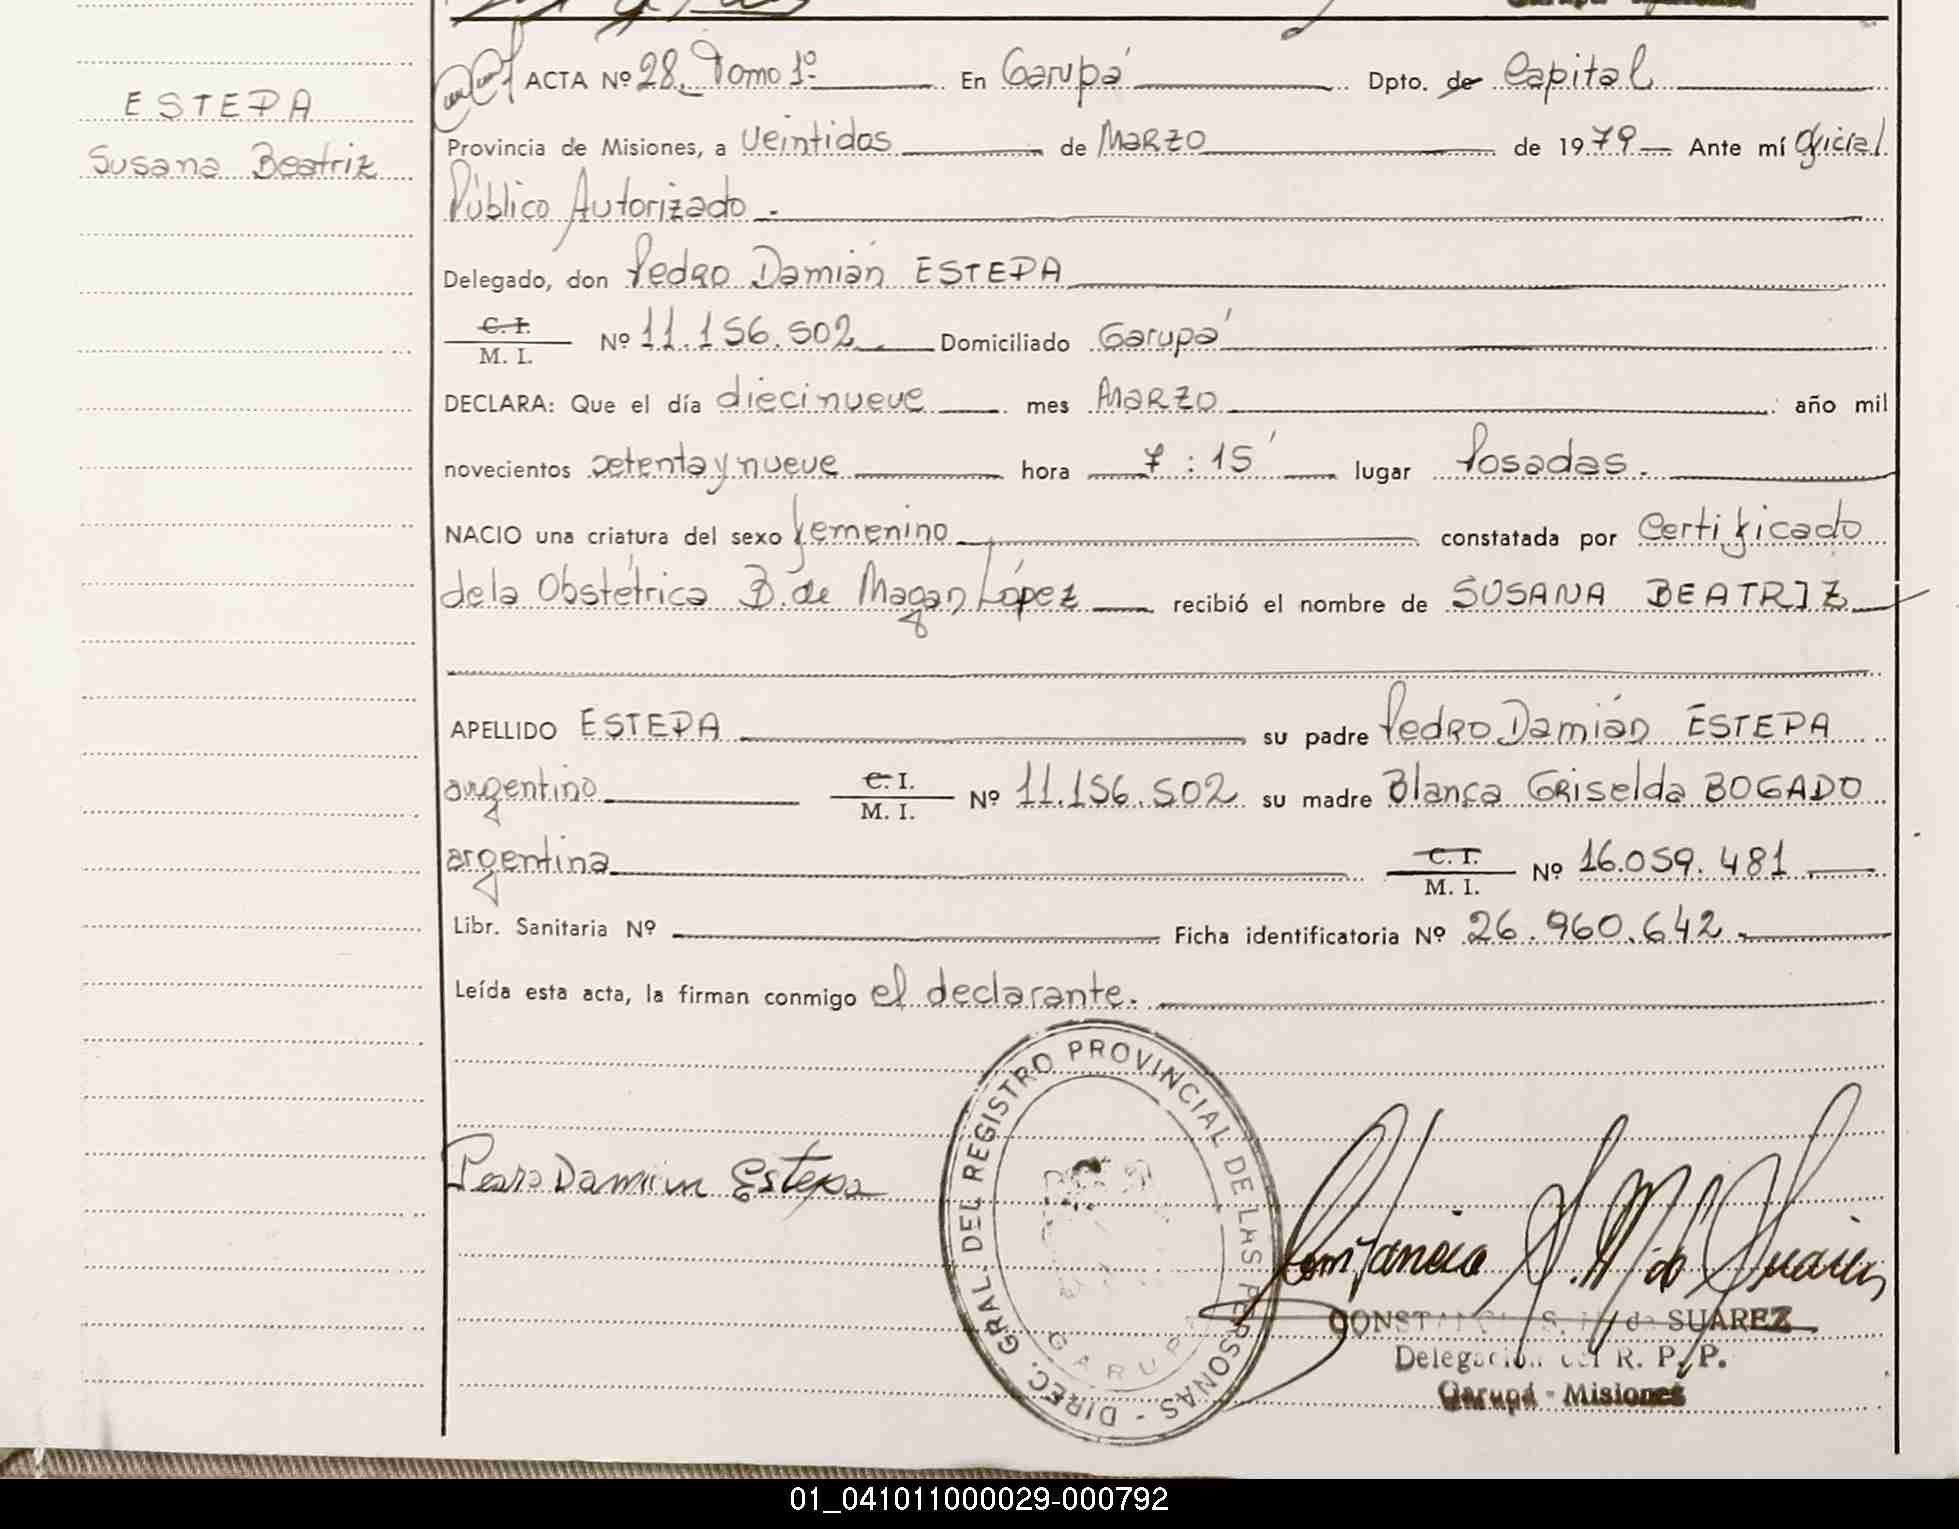 ESTEPA
Susana Beatriz
ACTA Nº 28. Tomo 1º En Garupá Dpto. de Capital
Provincia de Misiones, a Veintidos de Marzo de 1979 Ante mí Oficial
Público Autorizado.
Delegado, don Pedro Damián ESTEPA
C. I.
M. I. Nº 11.156.502 Domiciliado Garupá
DECLARA: Que el día diecinueve mes Marzo año mil
novecientos setenta y nueve hora 7:15' lugar Posadas.
NACIO una criatura del sexo femenino constatada por Certificado
de la Obstétrica B. de Magan López recibió el nombre de SUSANA BEATRIZ
APELLIDO ESTEPA su padre Pedro Damián ESTEPA
argentino C. I. M. I. Nº 11.156.502 su madre Blanca Griselda BOGADO
argentina C. I. M. I. Nº 16.059.481
Libr. Sanitaria Nº Ficha identificatoria Nº 26.960.642
Leída esta acta, la firman conmigo el declarante.
DIREC. GRAL. DEL REGISTRO PROVINCIAL DE LAS PERSONAS -
GARUPA
Pedro Damian Estepa
Constancia S. M. de Suarez
CONSTANCIA S. M. de SUAREZ
Delegación del R. P. P.
Garupá - Misiones
01_041011000029-000792